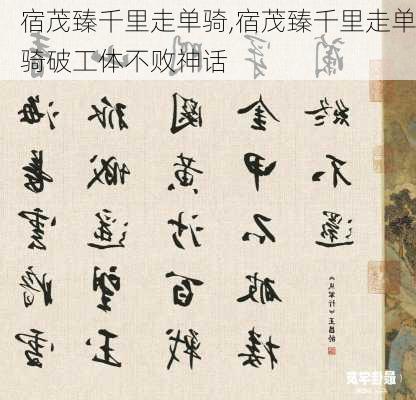 宿茂臻千里走单骑,宿茂臻千里走单
骑破工体不败神话
青海長雲暗雪
山孤城遥望玉
門關黄沙百戰
穿金甲不破樓
蘭終不還
《从军行》王昌龄